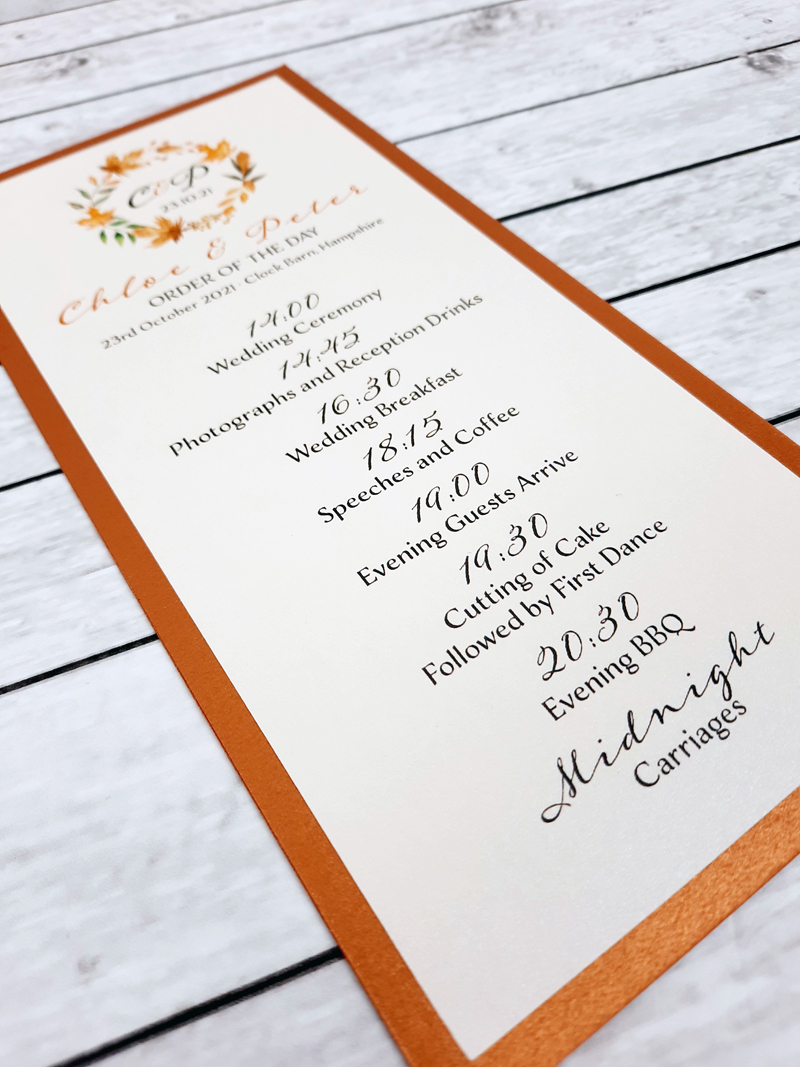 C&P
23.10.21
Chloe & Peter
ORDER OF THE DAY
23rd October 2021 · Clock Barn, Hampshire
14:00
Wedding Ceremony
14:45
Photographs and Reception Drinks
16:30
Wedding Breakfast
18:15
Speeches and Coffee
19:00
Evening Guests Arrive
19:30
Cutting of Cake
Followed by First Dance
20:30
Evening BBQ
Midnight
Carriages